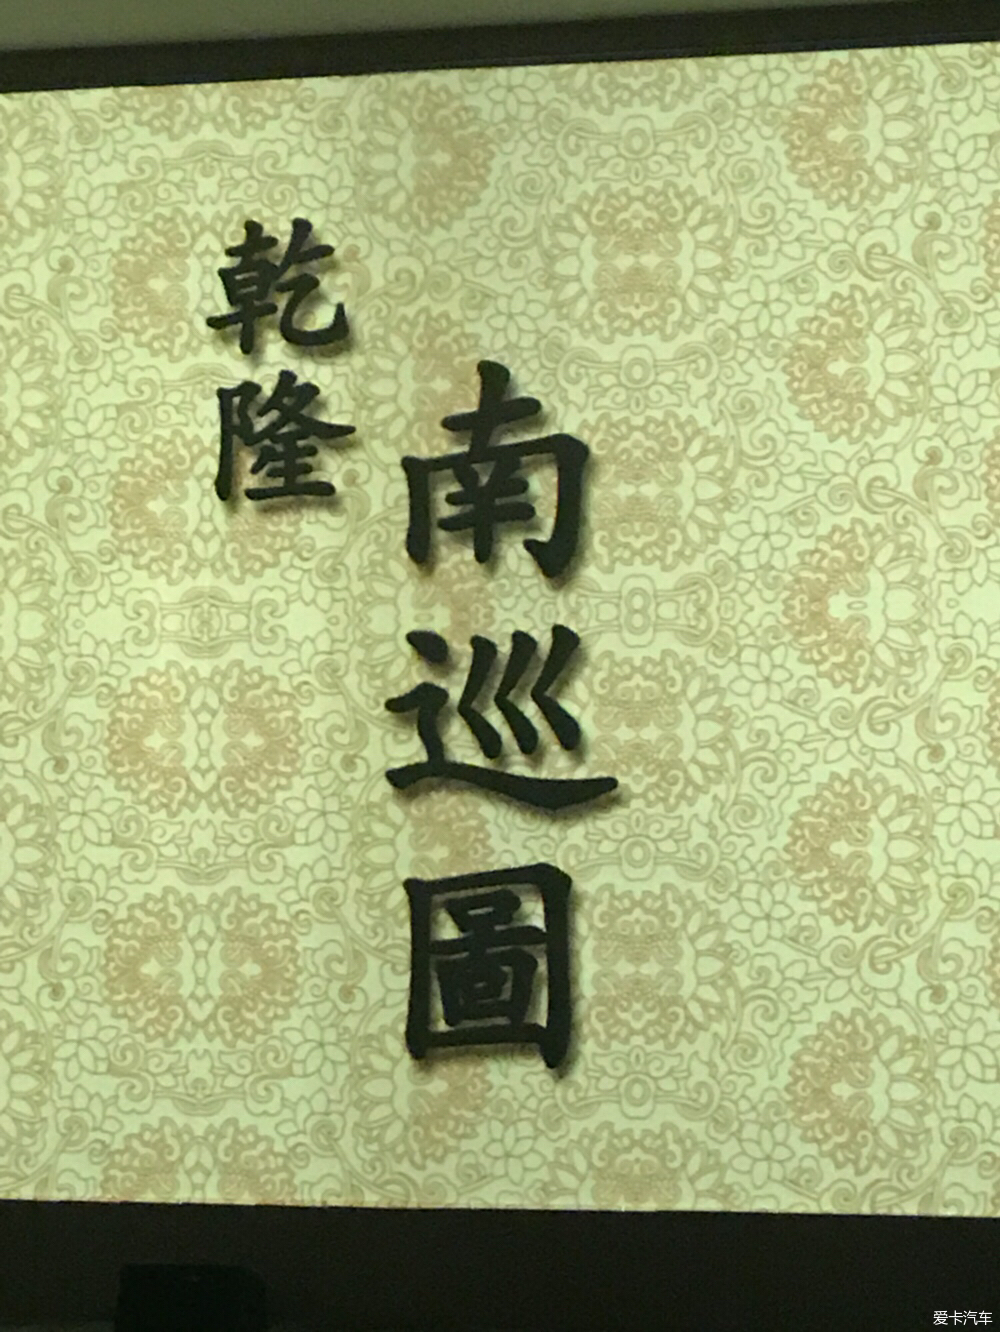 乾隆
南巡圖
爱卡汽车